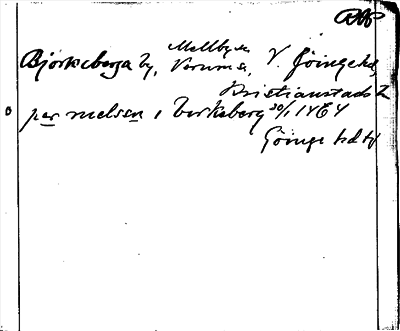 Björkeberga by, Verums s, V. Göinge hd,
Kristianstads l
per nielsen i berkeberg 30/1 1664
Göinge hd tf